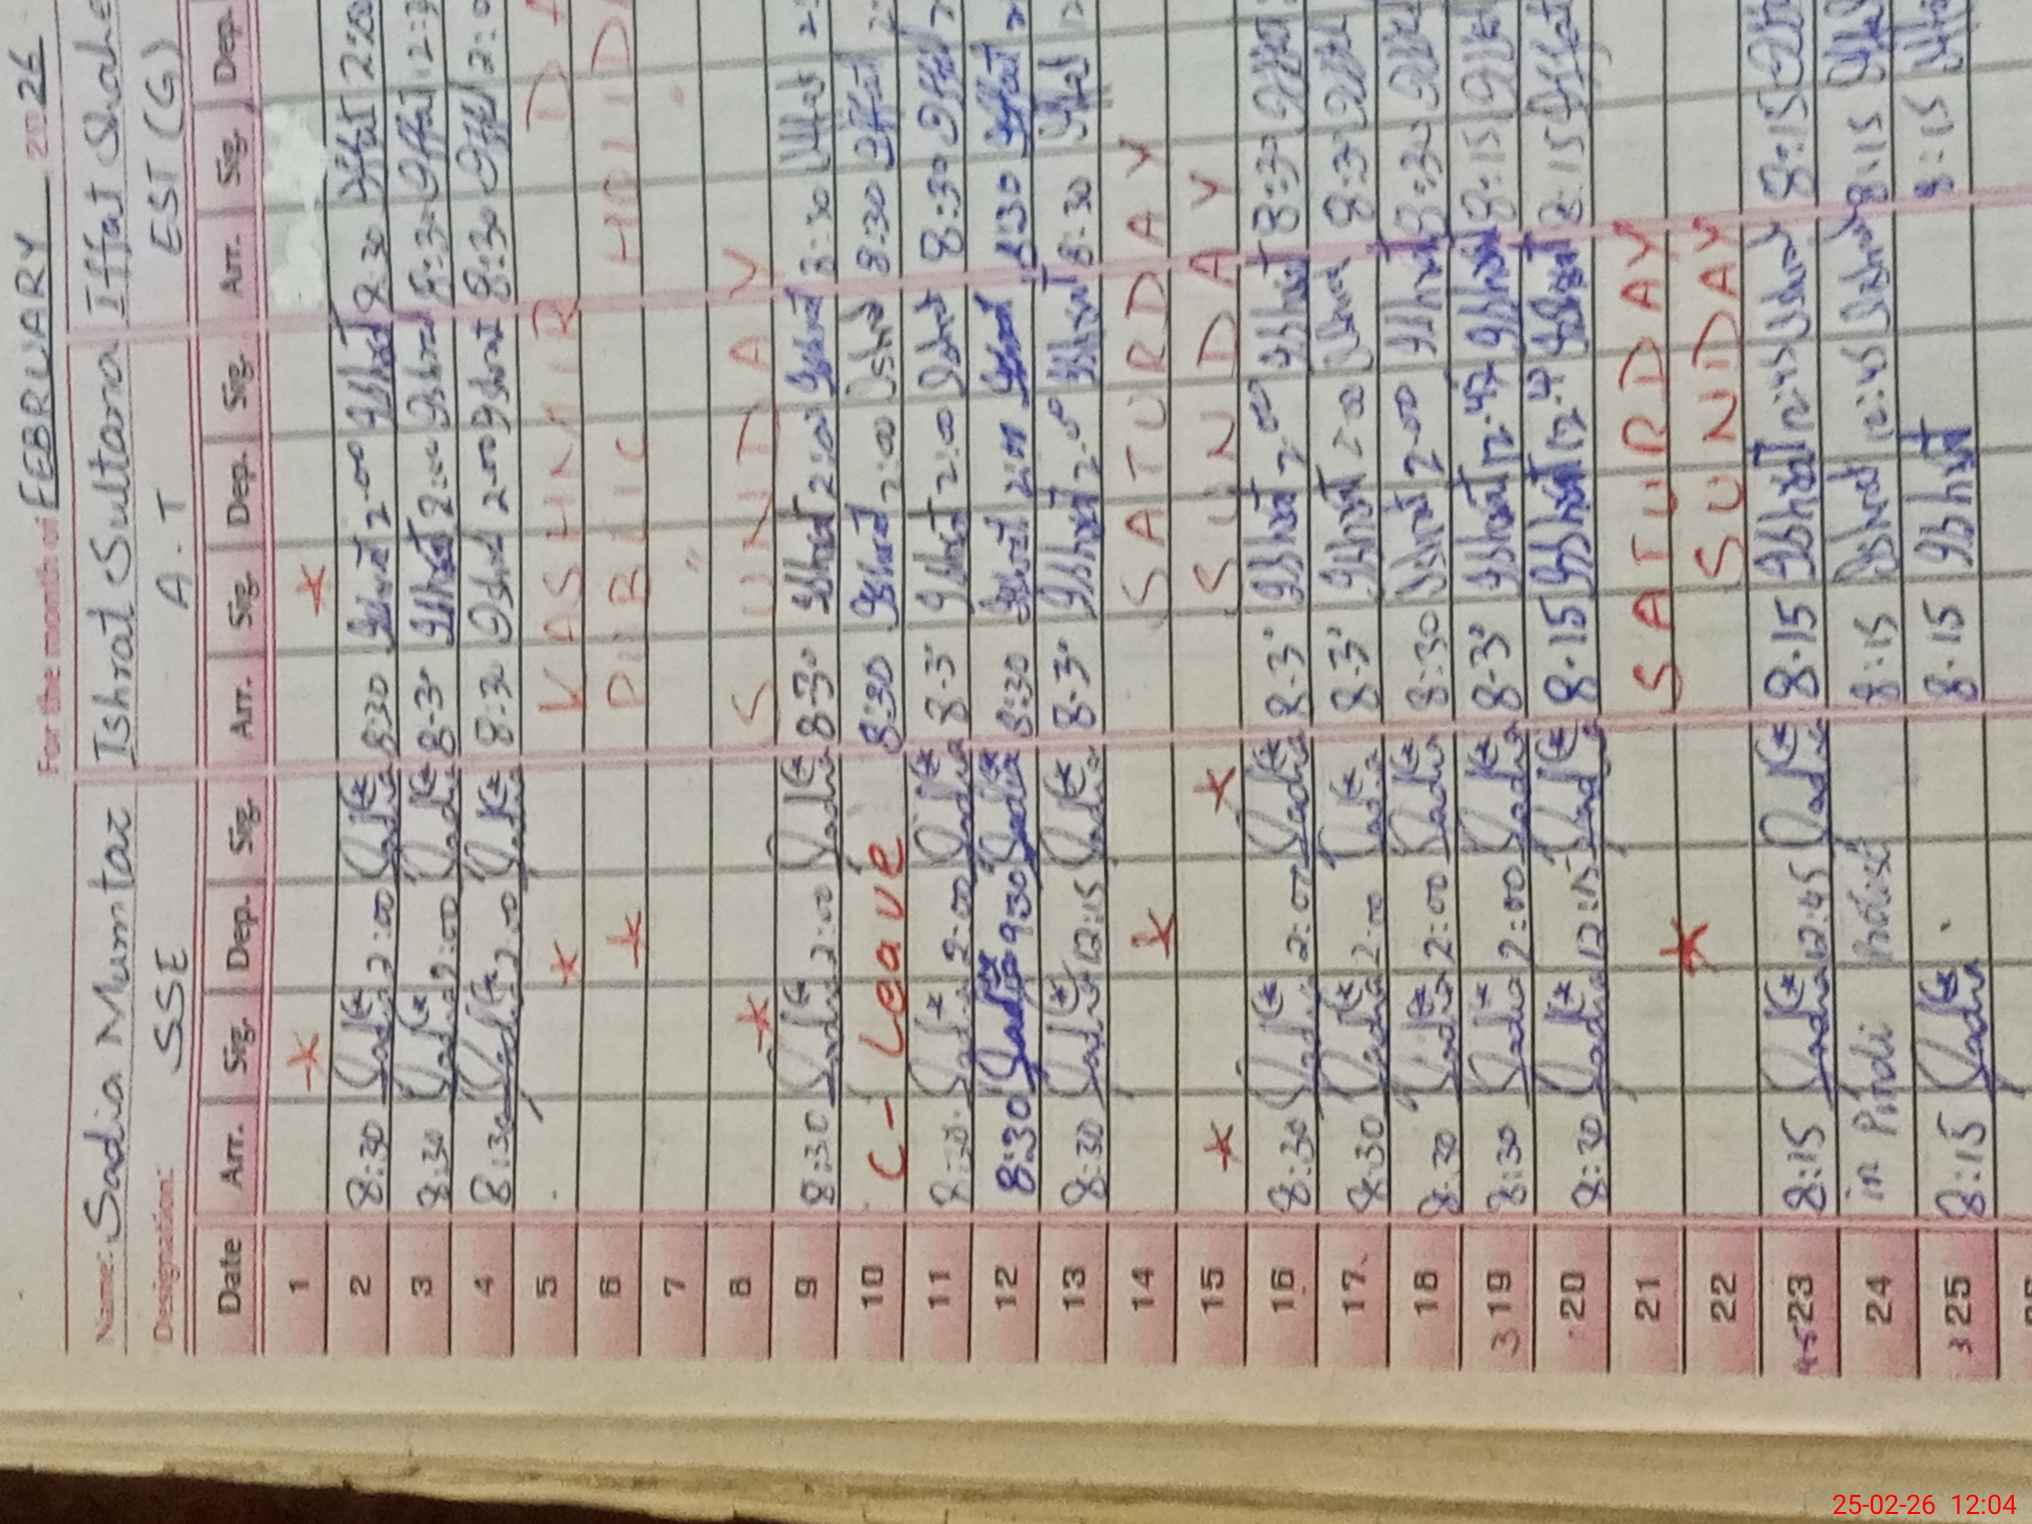 For the month of FEBRUARY 2026
Name: Sadia Mumtaz Ishrat Sultana Iffat Shahe
Designation: SSE A.T EST (G)
Date Arr. Sig. Dep. Sig. Arr. Sig. Dep. Sig. Arr. Sig. Dep.
1
2 8:30 Sadia 2:00 Sadia 8:30 Ishrat 2-00 Ishrat 8:30 Iffat 2:00
3 8:30 Sadia 2:00 Sadia 8-30 Ishrat 2:00 Ishrat 8:30 Iffat
4 8:30 Sadia 2:00 Sadia 8-30 Ishrat 2-00 Ishrat 8:30 Iffat
5 KASHMIR DA
6 PUBLIC HOLIDA
7
8 SUNDAY
9 8:30 Sadia 2:00 Sadia 8-30 Ishrat 2:00 Ishrat 8:30 Iffat
10 C- Leave 8:30 Ishrat 2:00 Ishrat 8:30 Iffat
11 8:30 Sadia 2-00 Sadia 8-30 Ishrat 2:00 Ishrat 8:30 Iffat
12 8:30 Sadia 9:30 Sadia 8:30 Ishrat Ishrat 8:30 Iffat
13 8:30 Sadia 12:15 Sadia 8-30 Ishrat 2-00 Ishrat 8:30 Iffat
14 SATURDAY
15 SUNDAY
16 8:30 Sadia 2:00 Sadia 8-30 Ishrat 2-00 Ishrat 8:30 Iffat
17 8:30 Sadia 2-00 Sadia 8-30 Ishrat 2-00 Ishrat 8:30 Iffat
18 8:30 Sadia 2:00 Sadia 8:30 Ishrat 2-00 Ishrat 8:30 Iffat
3 19 8:30 Sadia 2:00 Sadia 8-30 Ishrat 12-45 Ishrat 8:15 Iffat
20 8:30 Sadia 12:15 Sadia 8-15 Ishrat Ishrat 8:15 Iffat
21 SATURDAY
22 SUNDAY
23 8:15 Sadia 12:45 Sadia 8-15 Ishrat 12:45 Ishrat 8:15 Iffat
24 in Pindi 8:15 Ishrat 12:45 Ishrat 8:15 Iffat
3 25 8:15 Sadia 8-15 Ishrat 8:15 Iffat
25-02-26 12:04